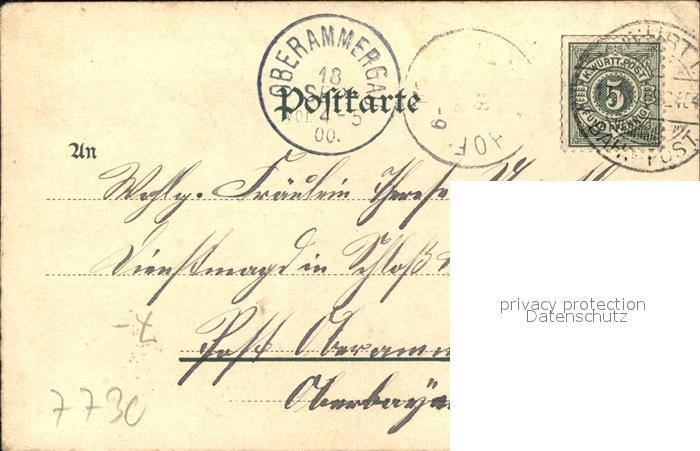 OBERAMMERGA
18
SEP
Vor. 4-5
00.
Postkarte
HOF
K. WÜRTT. POST
5
FÜNF PFENNIG
WÜRTT
BAHNPOST
An
Wohlg. Fräulein Therese
Dienstmagd in Schloß
Post Oberamm
Oberbaye
7730
privacy protection
Datenschutz